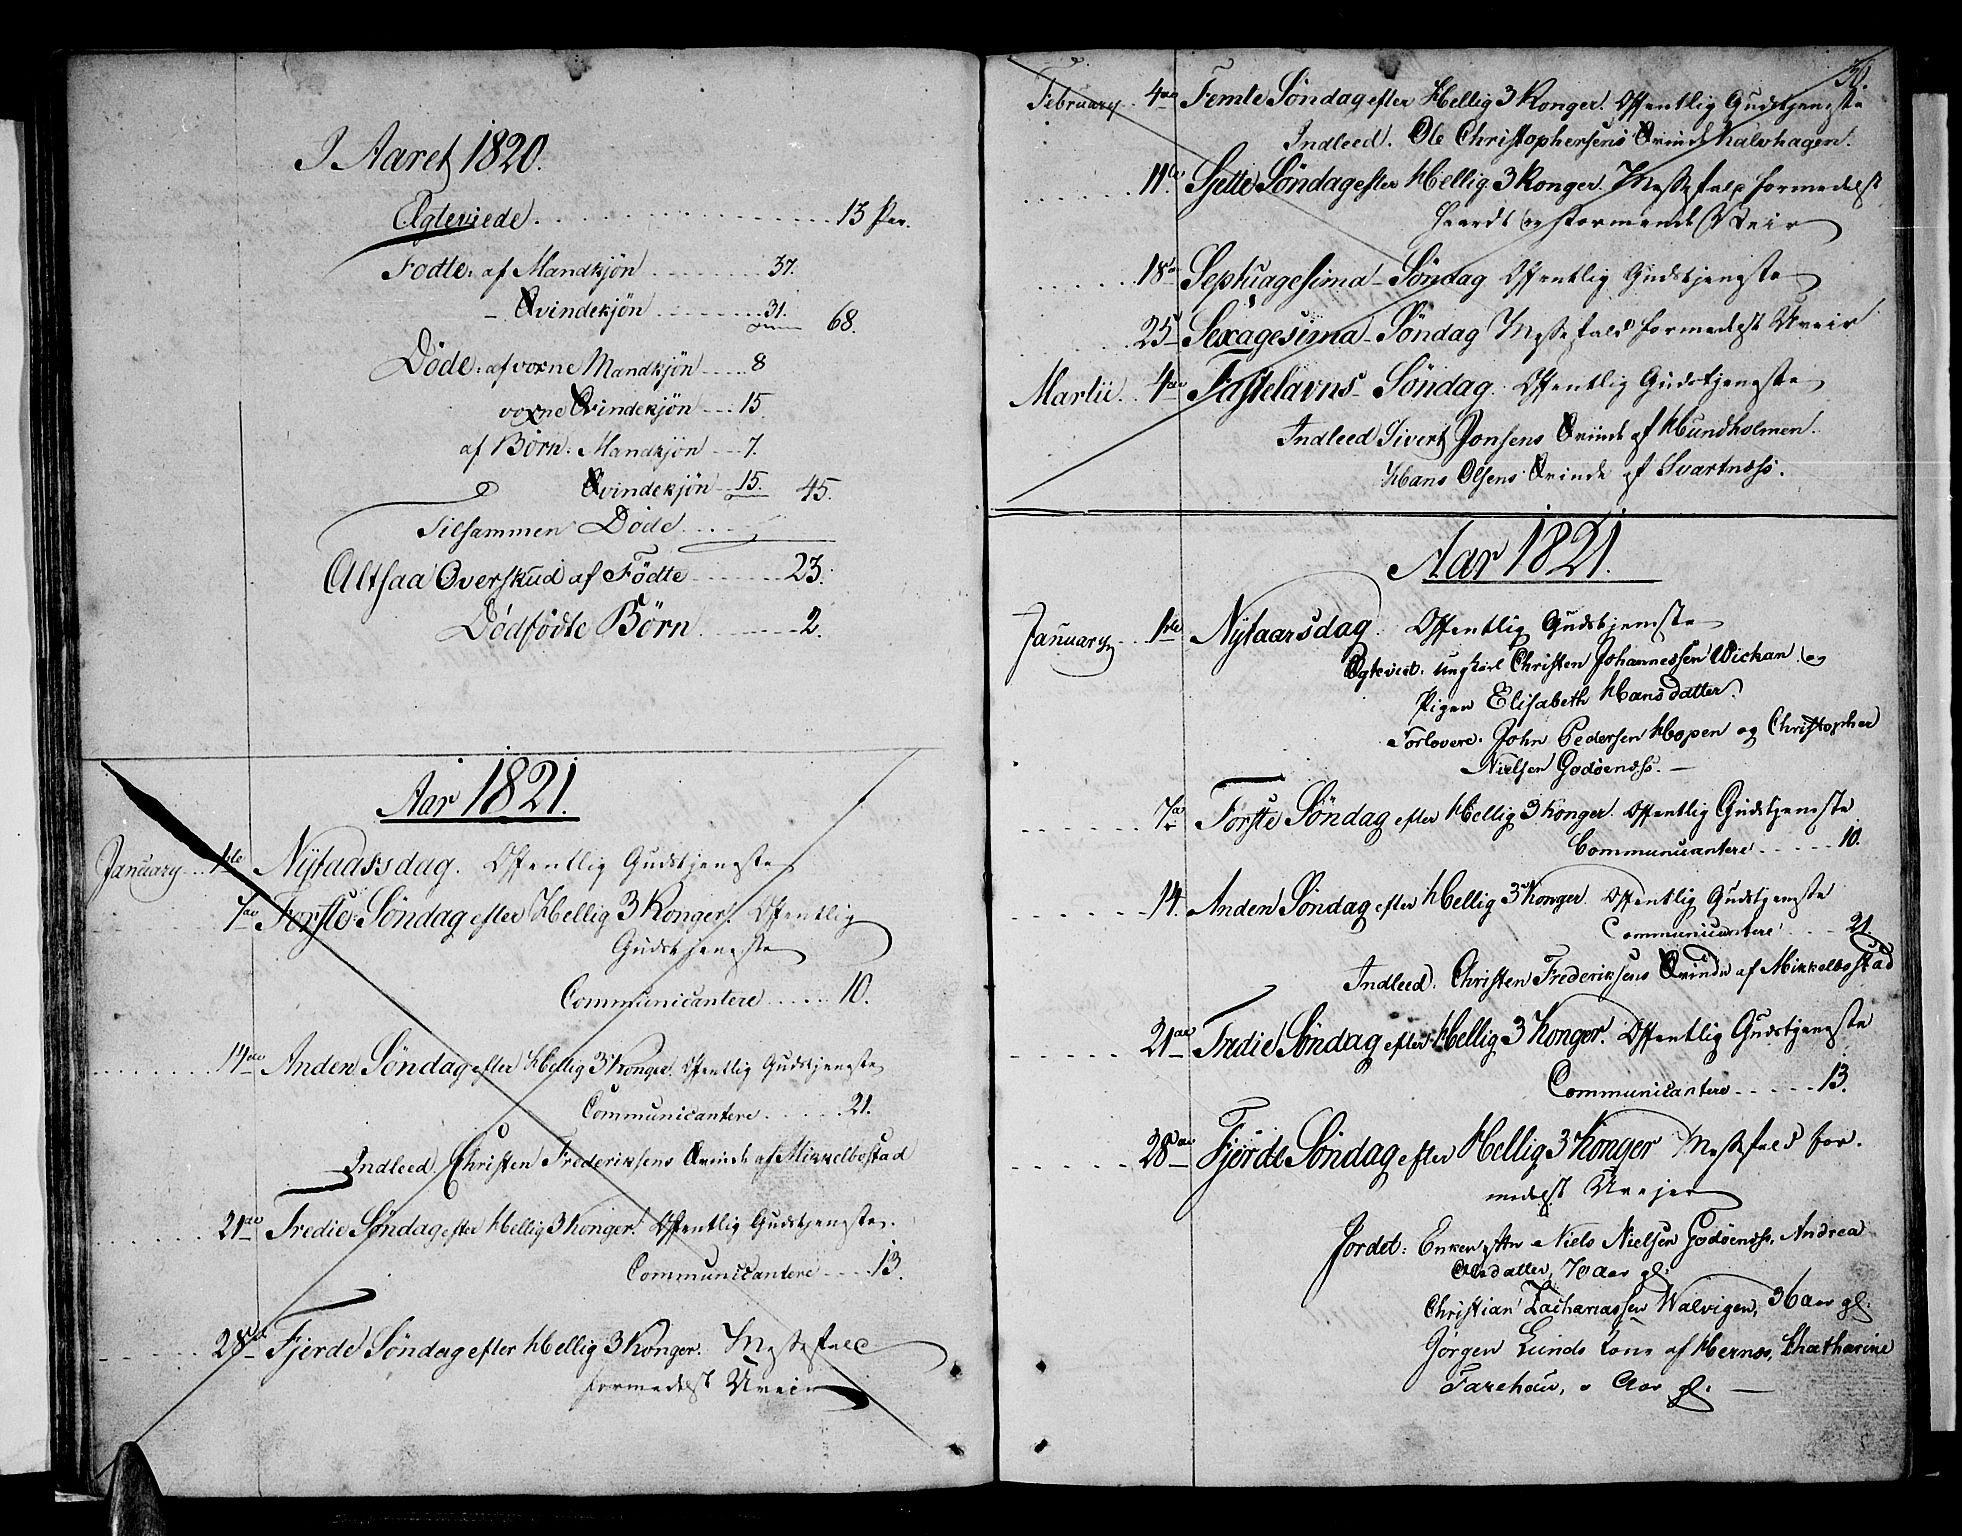 I Aaret 1820.
Ægteviede. 13 Par.
Födte: af Mandkjön 37.
– Qvindekjön 31. 68.
Döde: af voxne Mandkjön 8
voxne Qvindekjön 15.
af Börn: Mandkjön 7.
Qvindekjön 15. 45.
Tilsammen Döde
Altsaa Overskud af Födte 23.
Dödfödte Börn 2.
Aar 1821.
January 1te Nytaarsdag. Offentlig Gudstjeneste
7de Förste Söndag efter Hellig 3 Konger. Offentlig
Gudstjeneste
Communicantere 10.
14de Anden Söndag efter Hellig 3 Konger. Offentlig Gudstjeneste
Communicantere 21.
Indleed. Christen Frederiksens Qvinde af Mikkelbostad
21de Tredie Söndag efter Hellig 3 Konger. Offentlig Gudstjeneste.
Communicantere 13.
28de Fjerde Söndag efter Hellig 3 Konger. Messefald
formedelst Uveir
30.
February 4de Femte Söndag efter Hellig 3 Konger. Offentlig Gudstjeneste
Indleed. Ole Christophersens Qvinde Kalvhagen.
11te Sjette Söndag efter Hellig 3 Konger. Messefald formedelst
haardt og stormende Veir
18de Septuagesima – Söndag Offentlig Gudstjeneste
25de Sexagesima – Söndag Messefald formedelst Uveir
Martii 4de Fastelavns – Söndag. Offentlig Gudstjeneste
Indleed Sivert Jonsens Qvinde af Hundholmen.
Hans Olsens Qvinde af Svartnæss.
Aar 1821.
January 1te Nytaarsdag. Offentlig Gudstjeneste
Ægteviet: Ungkarl Christen Johannessen Wickan og
Pigen Elisabeth Hansdatter.
Forlovere: John Pedersen Hopen og Christopher
Nielsen Godöenæss. —
7de Förste Söndag efter Hellig 3 Konger. Offentlig Gudstjeneste
Communicantere 10.
14. Anden Söndag efter Hellig 3 Konger. Offentlig Gudstjeneste
Communicantere 21.
Indleed. Christen Frederiksens Qvinde af Mikkelbostad
21de Tredie Söndag efter Hellig 3 Konger. Offentlig Gudstjeneste
Communicantere 13.
28de Fjerde Söndag efter Hellig 3 Konger Messefald for-
medelst Uvejer
Jordet: Enken efter Niels Nielsen Godöenæss, Andrea
datter, 70 Aar gl.
Christian Zachariassen Walvigen, 36 Aar gl.
Jörgen Lunds Kone af Hernæs, Chatharine
Aar gl. —